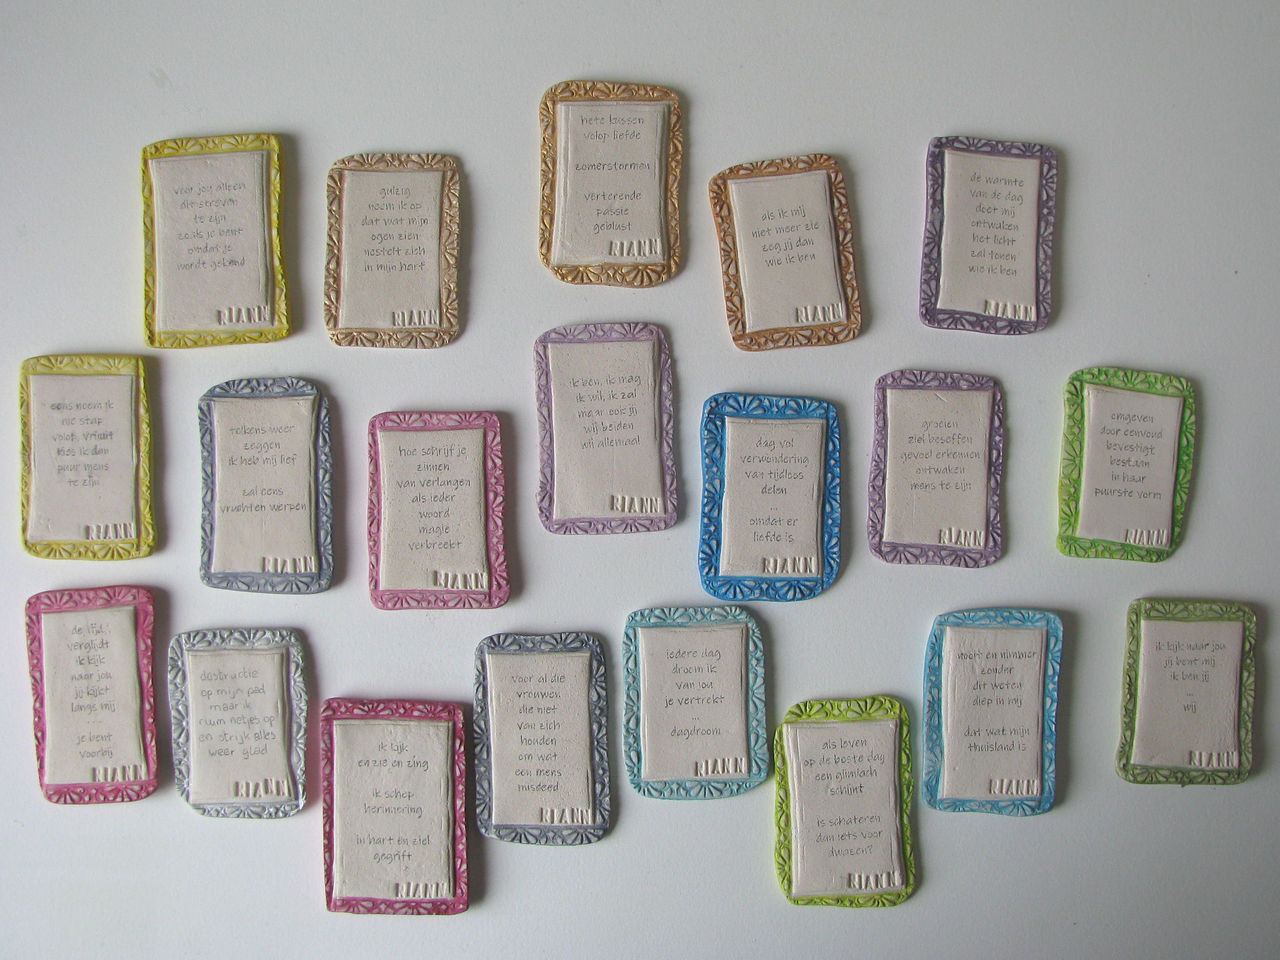 voor jou alleen
dit streven
te zijn
zoals je bent
omdat je
wordt gekend
RIANN
gulzig
neem ik op
dat wat mijn
ogen zien
nestelt zich
in mijn hart
RIANN
hete kussen
volop liefde
zomerstormen
verterende
passie
geblust
RIANN
als ik mij
niet meer zie
zeg jij dan
wie ik ben
RIANN
de warmte
van de dag
doet mij
ontwaken
het licht
zal tonen
wie ik ben
RIANN
eens neem ik
die stap
volop, vrijuit
kies ik dan
puur mens
te zijn
RIANN
telkens weer
zeggen
ik heb mij lief
zal eens
vruchten werpen
RIANN
hoe schrijf je
zinnen
van verlangen
als ieder
woord
magie
verbreekt
RIANN
ik ben, ik mag
ik wil, ik zal
maar ook jij
wij beiden
wij allemaal
RIANN
dag vol
verwondering
van tijdloos
delen
...
omdat er
liefde is
RIANN
groeien
ziel beseffen
gevoel erkennen
ontwaken
mens te zijn
RIANN
omgeven
door eenvoud
bevestigt
bestaan
in haar
puurste vorm
RIANN
de tijd
verglijdt
ik kijk
naar jou
jij kijkt
langs mij
...
je bent
voorbij
RIANN
destructie
op mijn pad
maar ik
ruim netjes op
en strijk alles
weer glad
RIANN
ik kijk
en zie en zing
ik schep
herinnering
in hart en ziel
gegrift
RIANN
voor al die
vrouwen
die niet
van zich
houden
om wat
een mens
misdeed
RIANN
iedere dag
droom ik
van jou
je vertrekt
...
dagdroom
RIANN
als leven
op de beste dag
een glimlach
schijnt
is schateren
dan iets voor
dwazen?
RIANN
nooit en nimmer
zonder
dit weten
diep in mij
dat wat mijn
thuisland is
RIANN
ik kijk naar jou
jij bent mij
ik ben jij
...
wij
RIANN